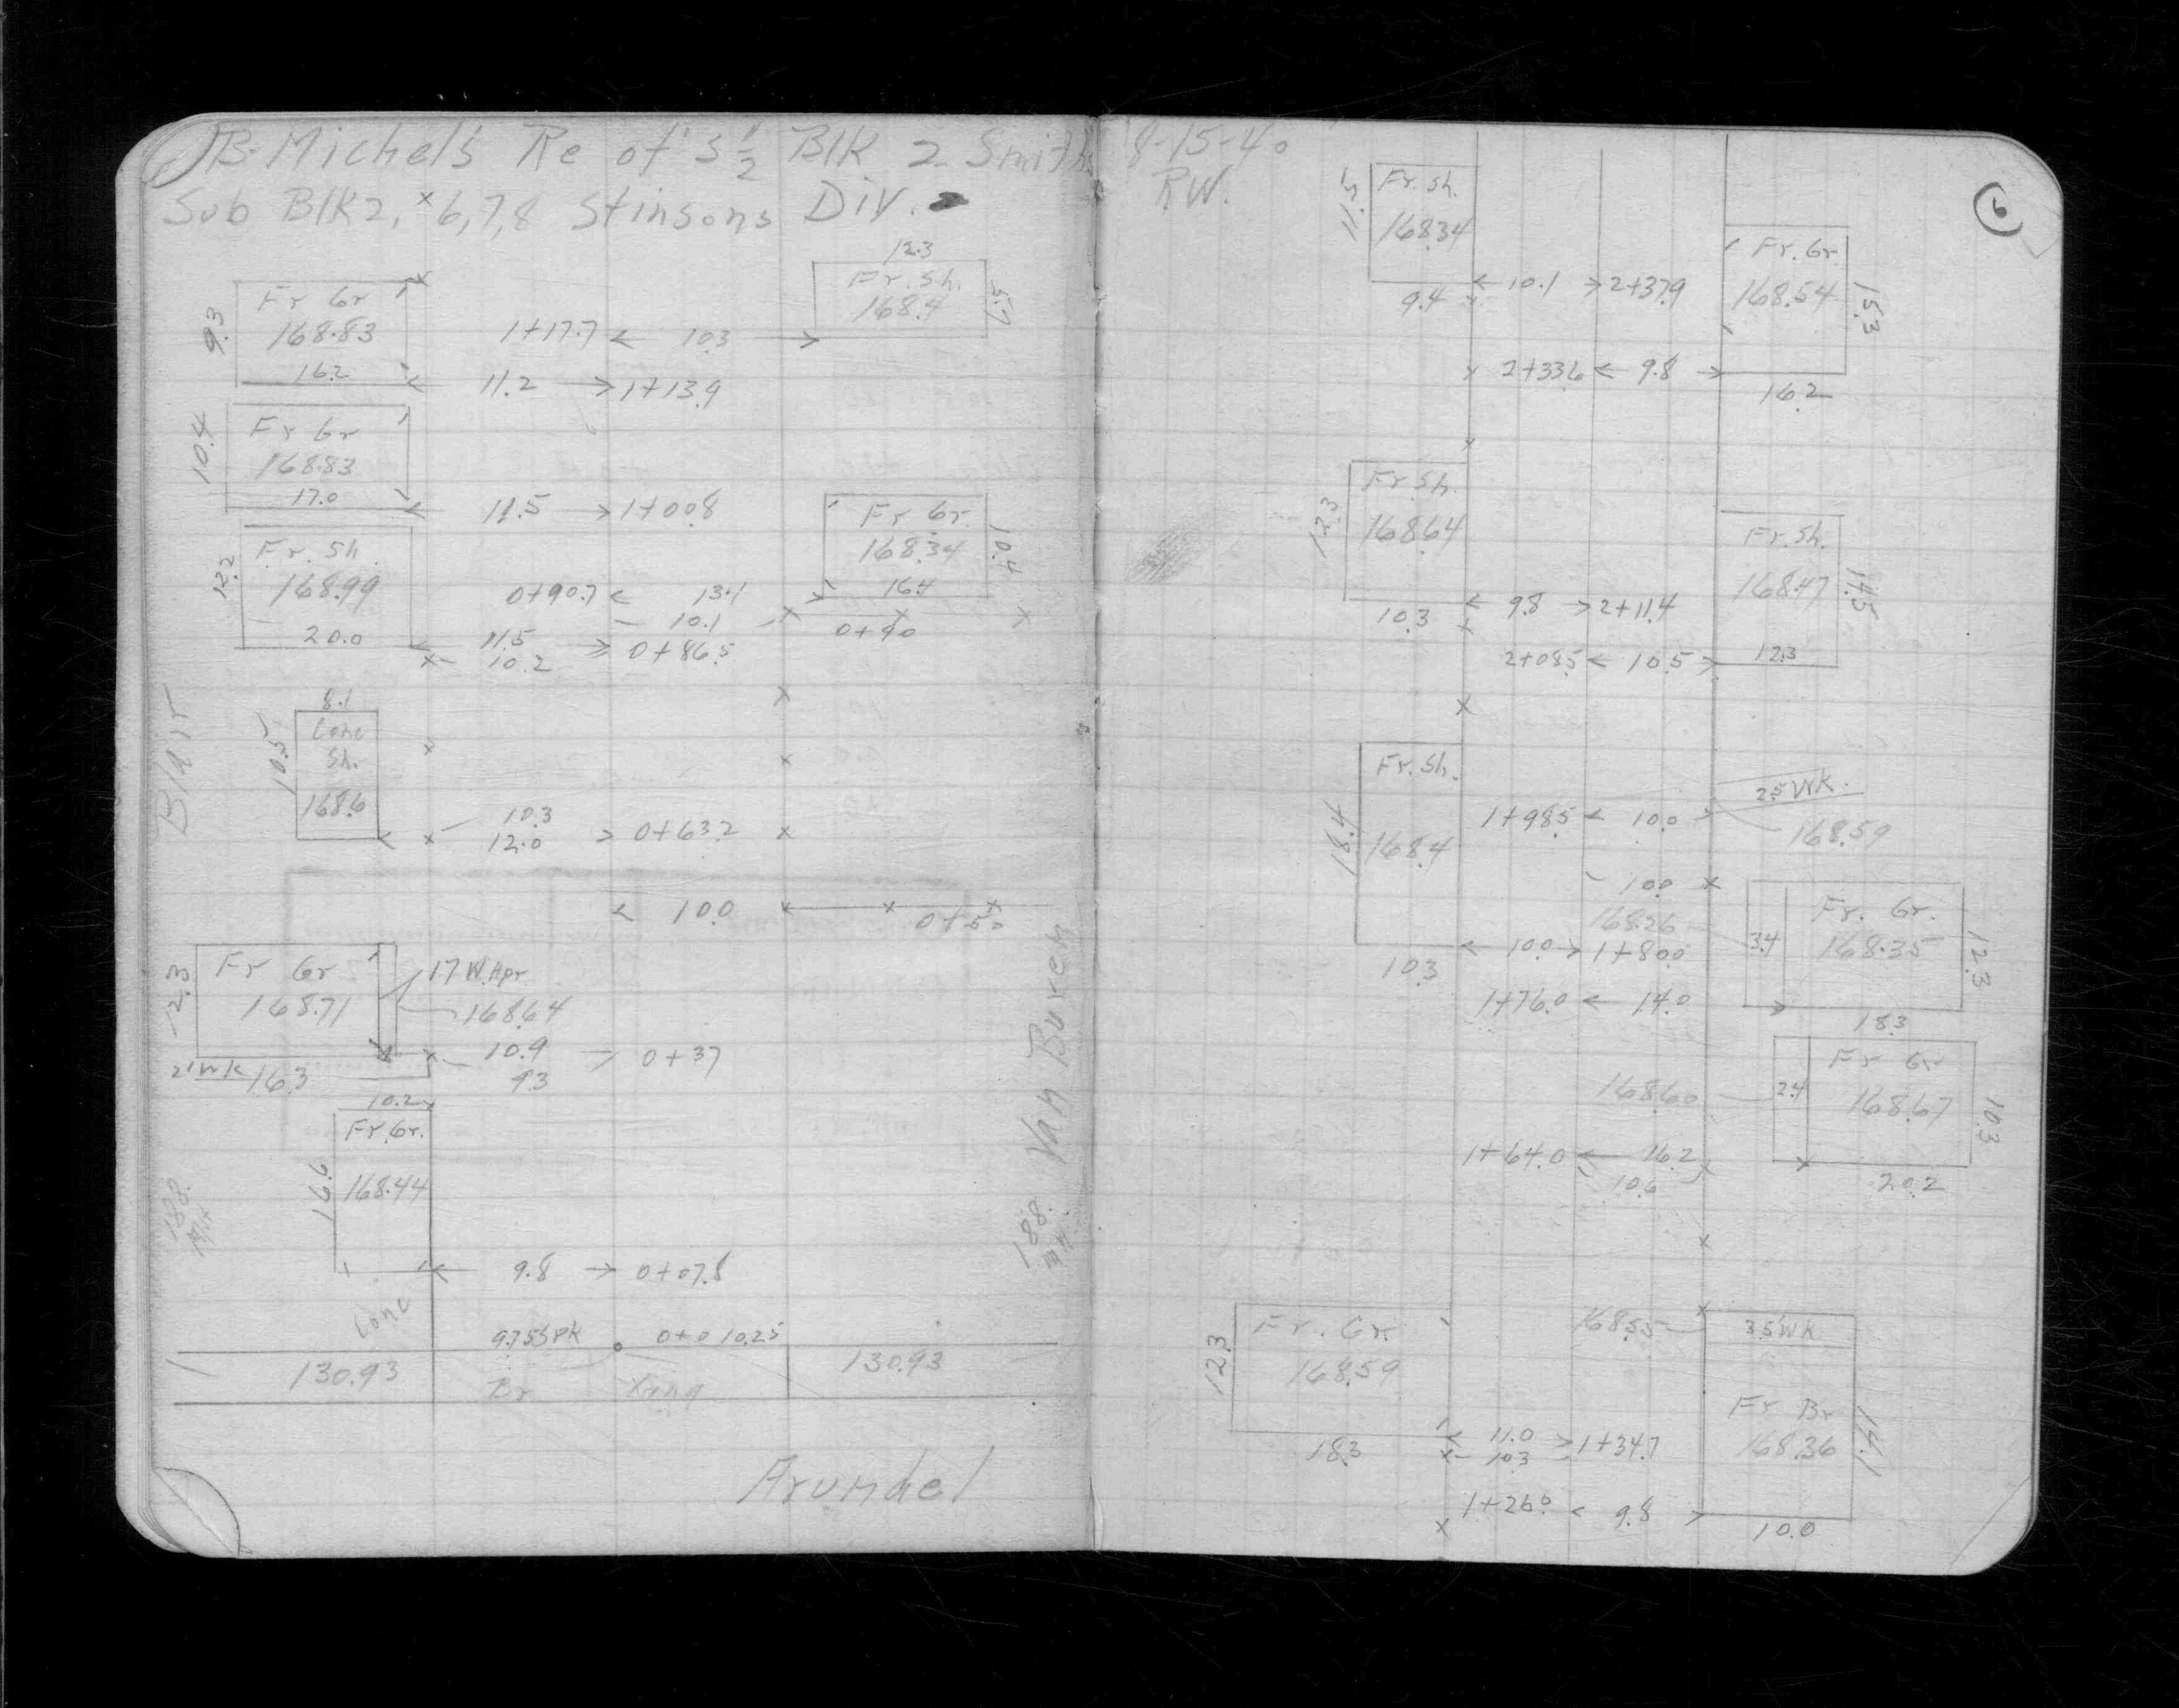 J.B. Michel's Re of S 1/2 Blk 2 Smiths
Sub Blk 2, *6,7,8 Stinsons Div.
12.3
Fr. Sh.
168.4
5.7
9.3
Fr Gr
168.83
16.2
1+17.7 < 10.3 >
< 11.2 > 1+13.9
10.4
Fr Gr
168.83
17.0
< 11.5 > 1+00.8
Fr Gr.
168.34
16.4
10.4
12.2
Fr. Sh.
168.99
20.0
0+90.7 < 13.1 >
10.1
0+90
< 11.5 > 0+86.5
x 10.2
Blair
8.1
10.5
Conc
Sh.
168.6
10.3
< x 12.0 > 0+63.2
< 10.0
0+50
12.3
Fr Gr
168.71
17 W. Apr
168.64
10.9 0+37
9.3
2' WK 16.3
Van Buren
10.2
Fr. Gr.
168.44
16.6
188.
188.
< 9.8 > 0+07.8
Conc
9.75 SPK 0+0 10.25
130.93
130.93
Br Xing
Arundel
8-15-40
RW.
6
11.5
Fr. Sh.
168.34
9.4
< 10.1 > 2+37.9
Fr. Gr.
168.54
15.3
16.2
2+33.6 < 9.8 >
12.3
Fr. Sh.
168.64
10.3
< 9.8 > 2+11.4
Fr. Sh.
168.47
14.5
12.3
2+08.5 < 10.5 >
18.4
Fr. Sh.
168.4
10.3
2.5 WK.
168.59
1+98.5 < 10.0 >
10.0 x
168.26
3.4
Fr. Gr.
168.35
12.3
18.3
< 10.0 > 1+80.0
1+76.0 < 14.0
168.60
2.4
Fr Gr
168.67
10.3
20.2
1+64.0 < 16.2
10.6
12.3
Fr. Gr.
168.59
18.3
168.55
3.5 WK
Fr Br
168.36
14.1
10.0
< 11.0 > 1+34.7
x 10.3
1+26.0 < 9.8 >